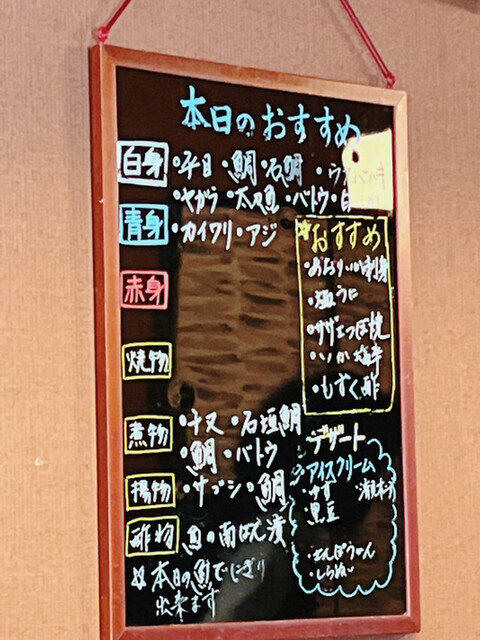 本日のおすすめ
白身 ・平目 ・鯛 ・石鯛
・ヤガラ ・太刀魚 ・バトウ
青身 ・カイワリ ・アジ
赤身
焼物
煮物 ・チヌ ・石垣鯛
・鯛 ・バトウ
揚物 ・サゴシ ・鯛
酢物 魚の南ばん漬
☆本日の魚でにぎり
出来ます
☆おすすめ
・あおりいか刺身
・塩うに
・サザエつぼ焼
・いか塩辛
・もずく酢
デザート
アイスクリーム
・ゆず
黒豆
・せんぽうかん
・しらぬい